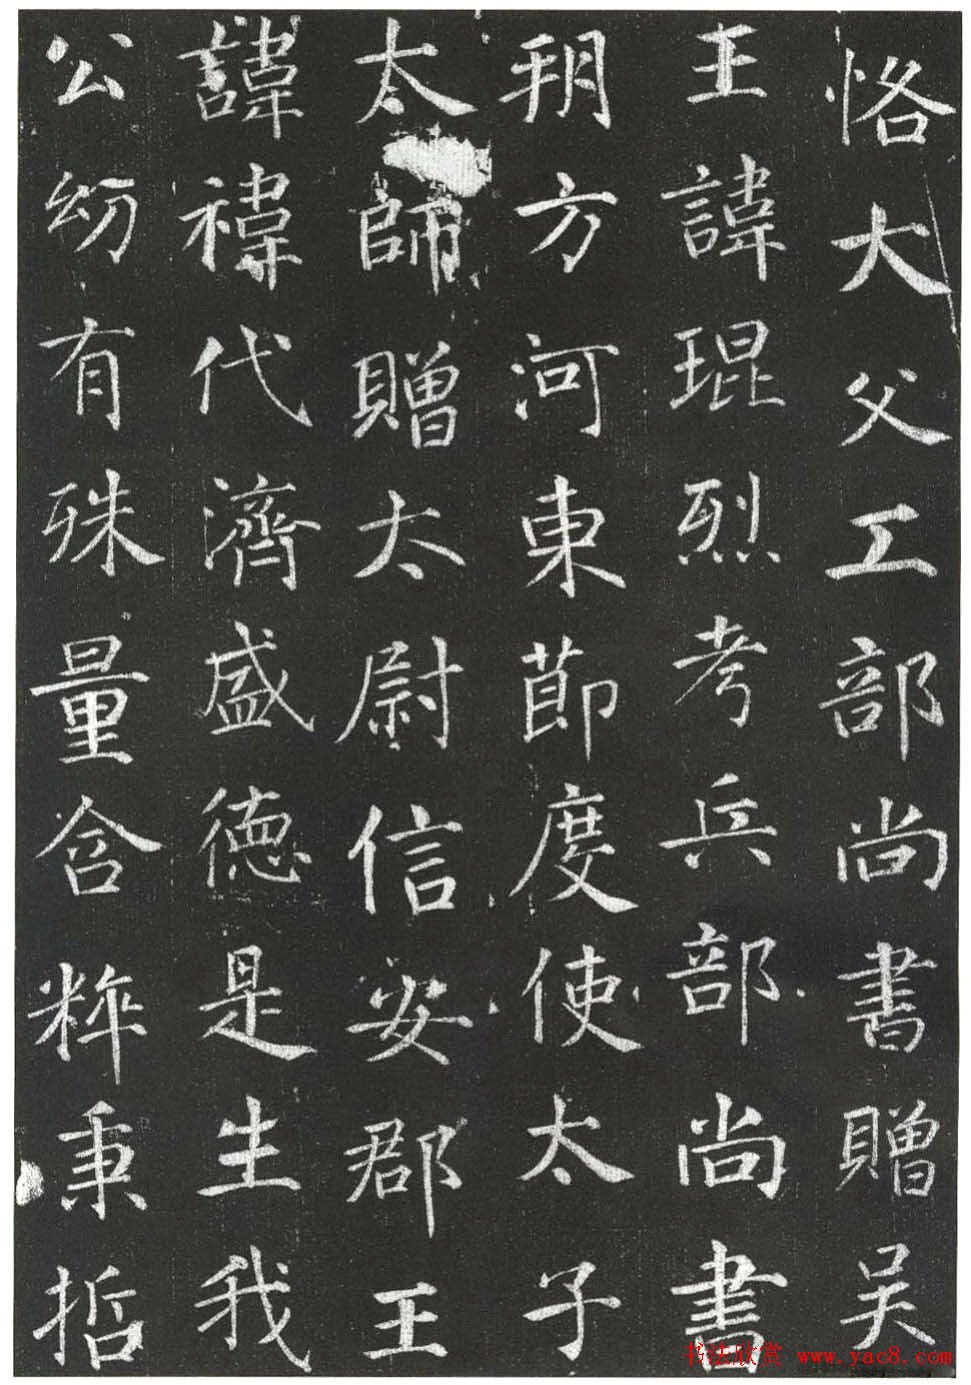 恪大父工部尚書贈吳
王諱琨烈考兵部尚書
朔方河東節度使太子
太師贈太尉信安郡王
諱禕代濟盛德是生我
公幼有殊量含粹秉哲
书法欣赏 www.yac8.com